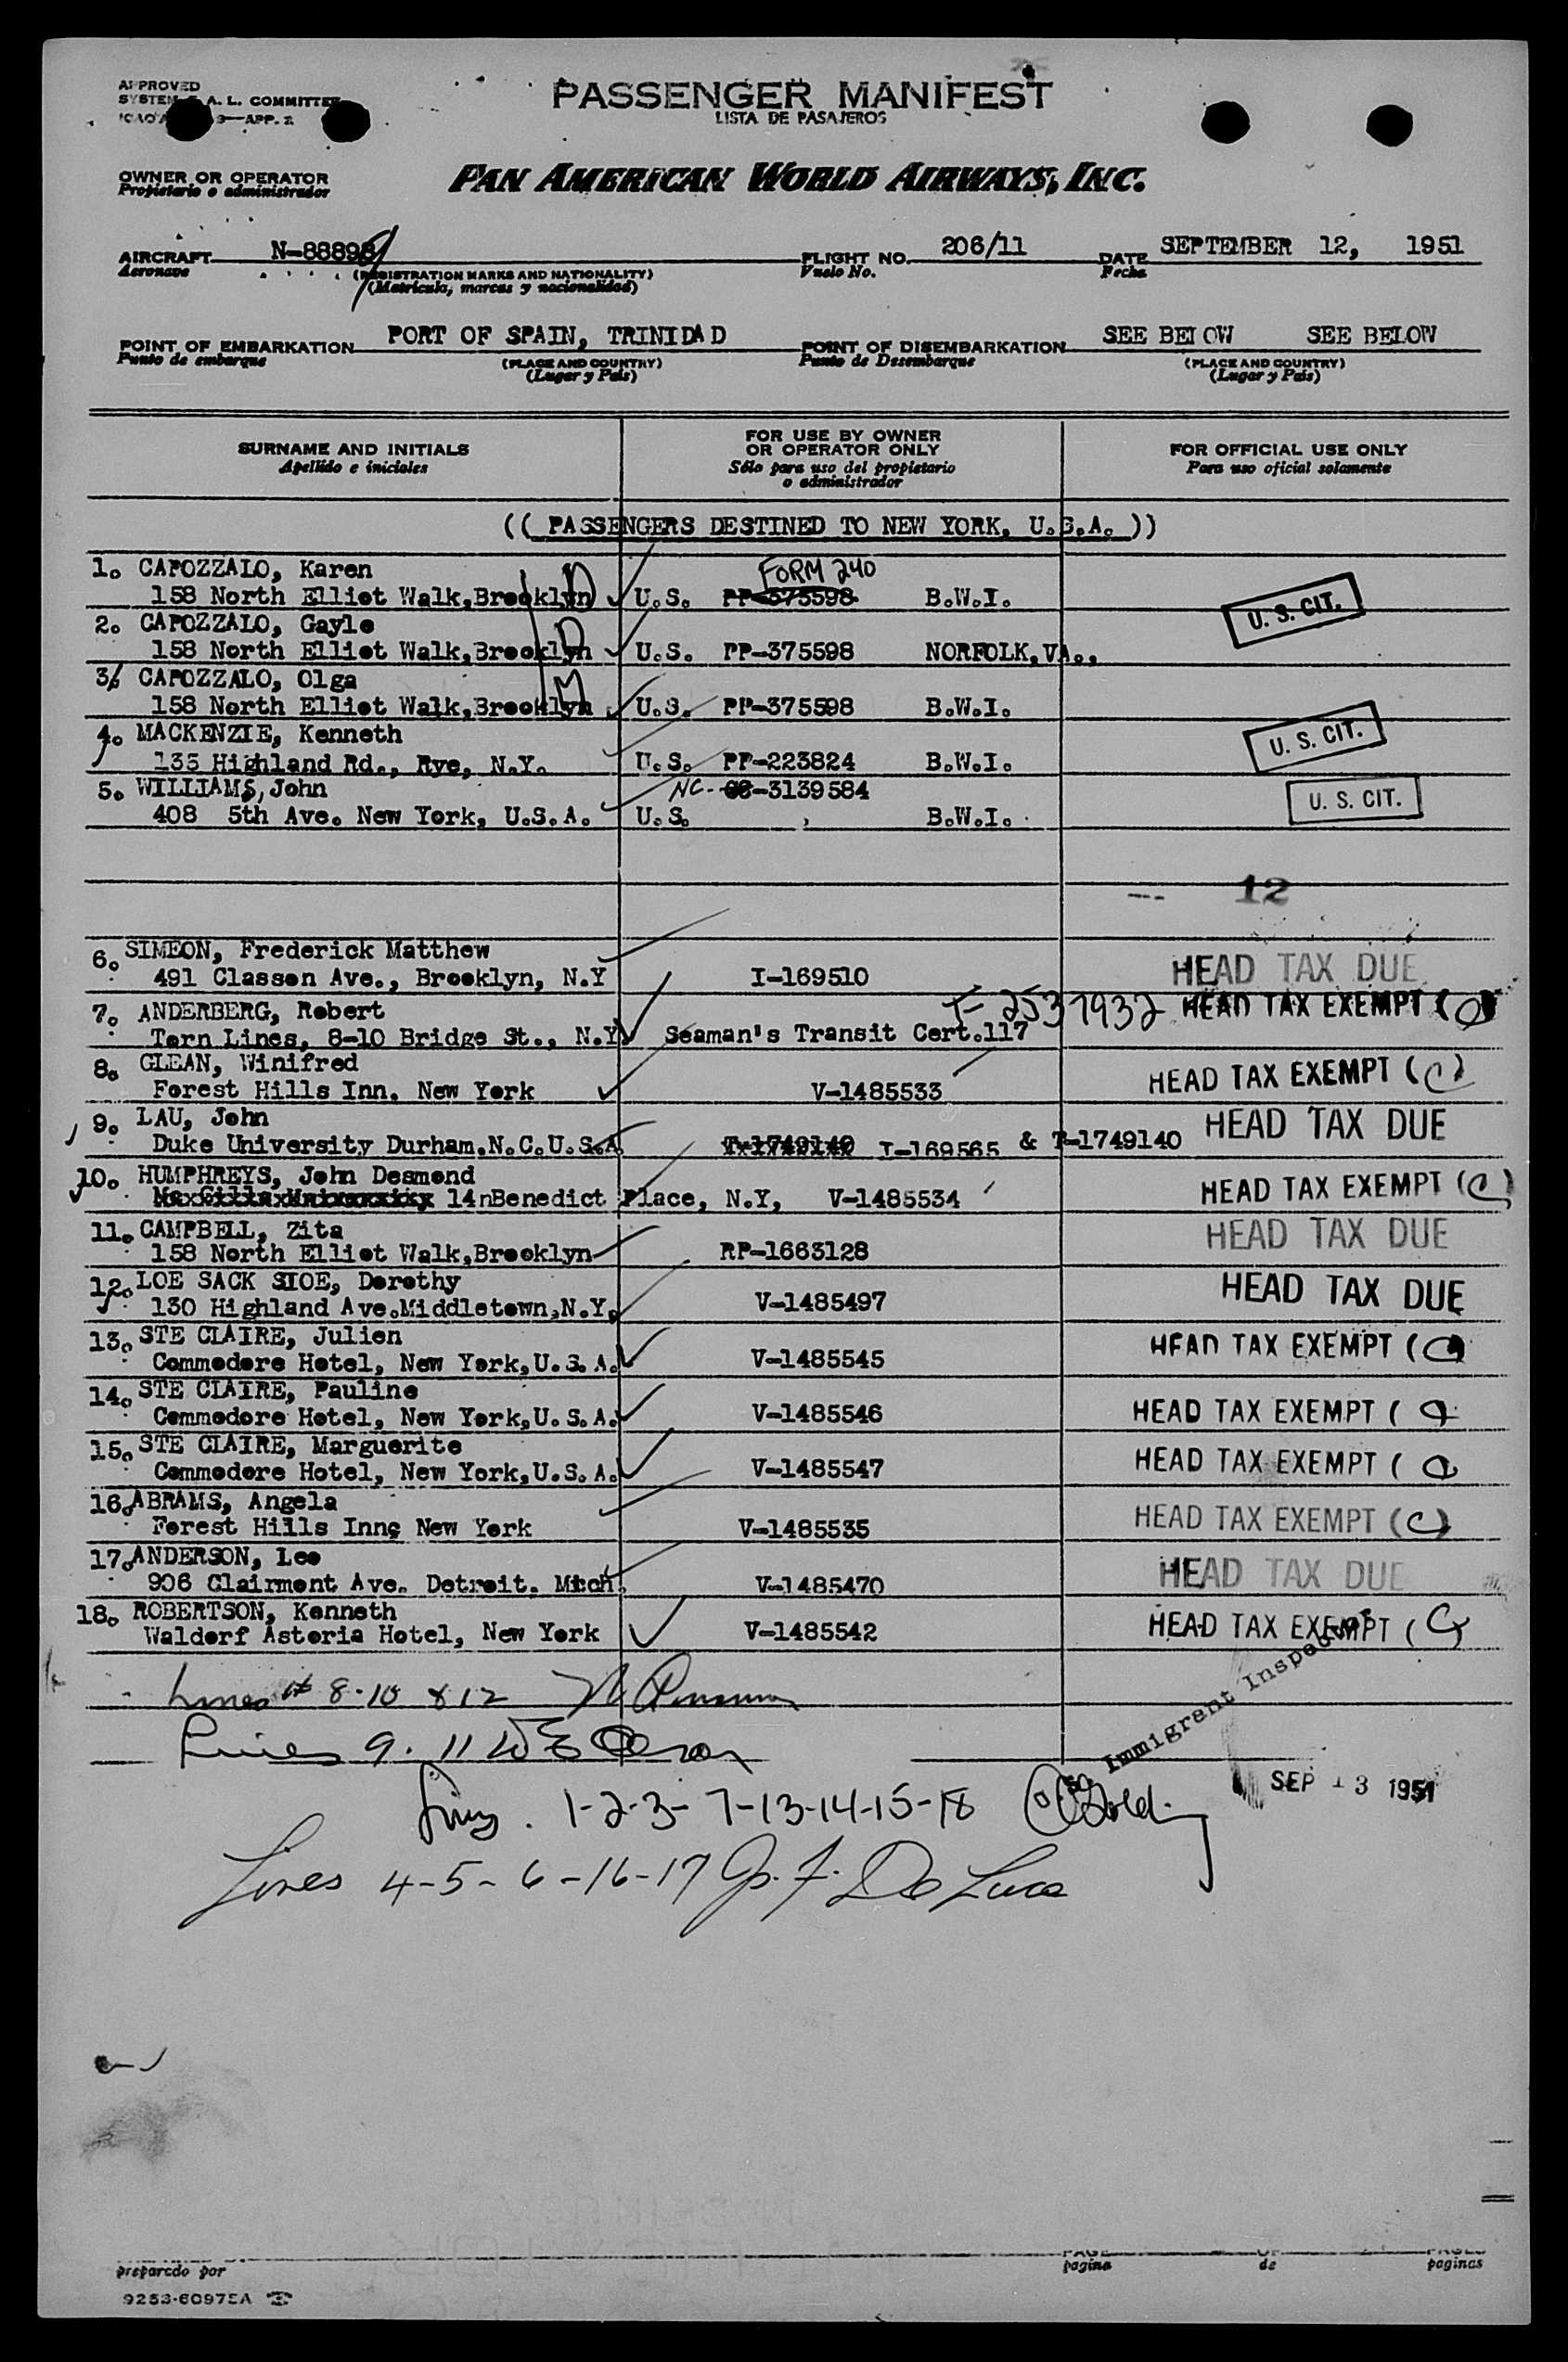 APPROVED
PASSENGER MANIFEST
SYSTEM A. L. COMMITTEE
LISTA DE PASAJEROS
APP. 2
OWNER OR OPERATOR
Propietario o administrador
PAN AMERICAN WORLD AIRWAYS, INC.
AIRCRAFT N-88898 FLIGHT NO. 206/11 DATE SEPTEMBER 12, 1951
Aeronave (REGISTRATION MARKS AND NATIONALITY) Vuelo No. Fecha
(Matrícula, marcas y nacionalidad)
POINT OF EMBARKATION PORT OF SPAIN, TRINIDAD POINT OF DISEMBARKATION SEE BELOW SEE BELOW
Punto de embarque (PLACE AND COUNTRY) Punto de Desembarque (PLACE AND COUNTRY)
(Lugar y País) (Lugar y País)
SURNAME AND INITIALS FOR USE BY OWNER OR OPERATOR ONLY FOR OFFICIAL USE ONLY
Apellido e iniciales Sólo para uso del propietario o administrador Para uso oficial solamente
(( PASSENGERS DESTINED TO NEW YORK, U.S.A. ))
1. CAPOZZALO, Karen FORM 240
158 North Elliot Walk,Brooklyn U.S. PP-375598 B.W.I. U. S. CIT.
2. CAPOZZALO, Gayle
158 North Elliot Walk,Brooklyn U.S. PP-375598 NORFOLK,VA.,
3. CAPOZZALO, Olga
158 North Elliot Walk,Brooklyn M U.S. PP-375598 B.W.I.
4. MACKENZIE, Kenneth
135 Highland Rd., Rye, N.Y. U.S. PP-223824 B.W.I. U. S. CIT.
5. WILLIAMS,John NC-3139584
408 5th Ave. New York, U.S.A. U.S. B.W.I. U. S. CIT.
12
6. SIMEON, Frederick Matthew
491 Classon Ave., Brooklyn, N.Y I-169510 HEAD TAX DUE
7. ANDERBERG, Robert 2537932 HEAD TAX EXEMPT (
Torn Lines, 8-10 Bridge St., N.Y Seaman's Transit Cert.117
8. GLEAN, Winifred
Forest Hills Inn. New York V-1485533 HEAD TAX EXEMPT (C)
9. LAU, John
Duke University Durham.N.C.U.S.A T-1749140 I-169565 & T-1749140 HEAD TAX DUE
10. HUMPHREYS, John Desmond
14nBenedict Place, N.Y, V-1485534 HEAD TAX EXEMPT (C)
11. CAMPBELL, Zita
158 North Elliot Walk,Brooklyn RP-1663128 HEAD TAX DUE
12. LOE SACK SIOE, Dorothy
130 Highland Ave.Middletown,N.Y. V-1485497 HEAD TAX DUE
13. STE CLAIRE, Julien
Commodore Hotel, New York,U.S.A. V-1485545 HEAD TAX EXEMPT (
14. STE CLAIRE, Pauline
Commodore Hotel, New York,U.S.A. V-1485546 HEAD TAX EXEMPT (
15. STE CLAIRE, Marguerite
Commodore Hotel, New York,U.S.A. V-1485547 HEAD TAX EXEMPT (
16. ABRAMS, Angela
Forest Hills Inn, New York V-1485535 HEAD TAX EXEMPT (C)
17. ANDERSON, Leo
906 Clairmont Ave. Detroit. Mich. V-1485470 HEAD TAX DUE
18. ROBERTSON, Kenneth
Waldorf Astoria Hotel, New York V-1485542 HEAD TAX EXEMPT (
Lines # 8-10 & 12
Lines 9. 11
Immigrant Inspector
SEP 13 1951
Lines. 1-2-3-7-13-14-15-18
Lines 4-5-6-16-17 De Luca
preparado por pagina de paginas
9253-6097EA